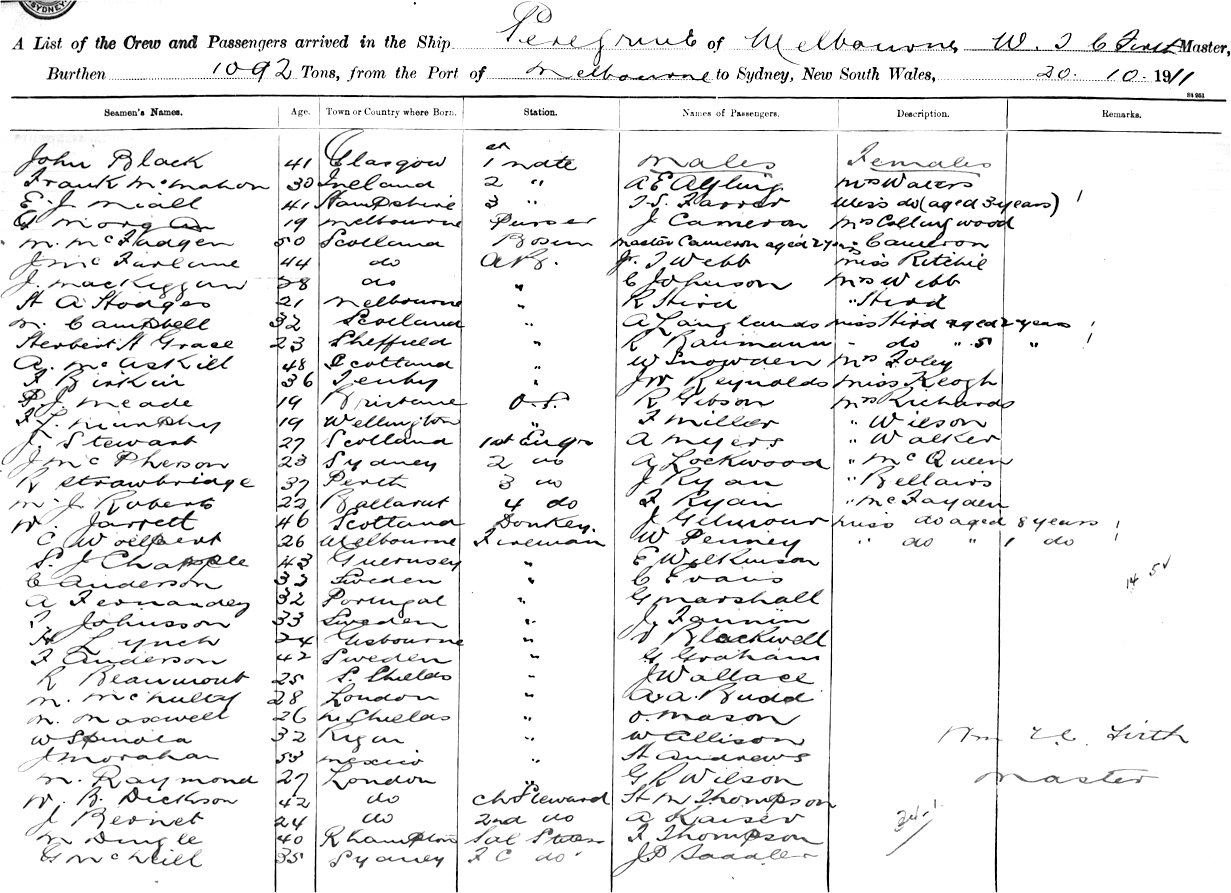 SYDNEY
A List of the Crew and Passengers arrived in the Ship Peregrine of Melbourne W. T C Firth Master,
Burthen 1092 Tons, from the Port of Melbourne to Sydney, New South Wales, 20. 10. 1911
Seamen's Names. Age. Town or Country where Born. Station. Names of Passengers. Description. Remarks.
John Black 41 Glasgow 1 mate Males Females
Frank McMahon 30 Ireland 2 " A E Mrs Waters
E. J. Miall 41 Hampshire 3 " T. S. Farrer Miss do (aged 3 years) 1
G Morgan 19 Melbourne Purser J Cameron Mrs Collingwood
M. McFadgen 50 Scotland Bosun Master Cameron aged 2 years " Cameron
J McFarlane 44 do A B. Jr. T Webb Miss Ritchie
J. MacKiggan 28 do " C Johnson Mrs Webb
H A Hodges 21 Melbourne " R Hird " Hird
M. Campbell 32 Scotland " A Langlands Miss Hird aged 2 years 1
Herbert H Grace 23 Sheffield " R Baumann " do " 5 " 1
A. McAskill 48 Scotland " W Snowden Mrs Foley
F Birkin 36 Tenby " J W Reynolds Miss Keogh
P. J Meade 19 Brisbane O.S. R Gibson Mrs Richards
F. J. Murphy 19 Wellington " F Miller " Wilson
J. Stewart 27 Scotland 1st Engr A Myers " Walker
J McPherson 23 Sydney 2 do A Lockwood " McQueen
R Strawbridge 37 Perth 3 do J Ryan " Bellairs
M J. Roberts 22 Ballarat 4 do F Ryan " McFayden
W. Jarrett 46 Scotland Donkey. J Gilmour Miss do aged 8 years 1
C Woelpert 26 Melbourne Fireman W Penney " do " 1 do 1
S. J Chapple 43 Guernsey " E Wilkinson
C Anderson 33 Sweden " C Evans
A Fernandez 32 Portugal " G Marshall
T Johnsson 33 Sweden " J. Fannin
H Lynch 24 Gisbourne " Blackwell
F Anderson 42 Sweden " G Graham
R Beaumont 25 S. Shields " J Wallace
M. McNulty 28 London " A. A. Budd
M. Maxwell 26 N Shields " O. Mason
W Spinola 32 Riga " W Allison Wm T. C. Firth
J Morahan 53 Mexico " H Andrews
M. Raymond 27 London " G R Wilson Master
W. B. Dickson 42 do Ch Steward H M Thompson
J Bernet 24 do 2nd do A Kaiser
M Dingle 40 R hampton Sal F Thompson
G McNeill 35 Sydney F C do J P Saddler